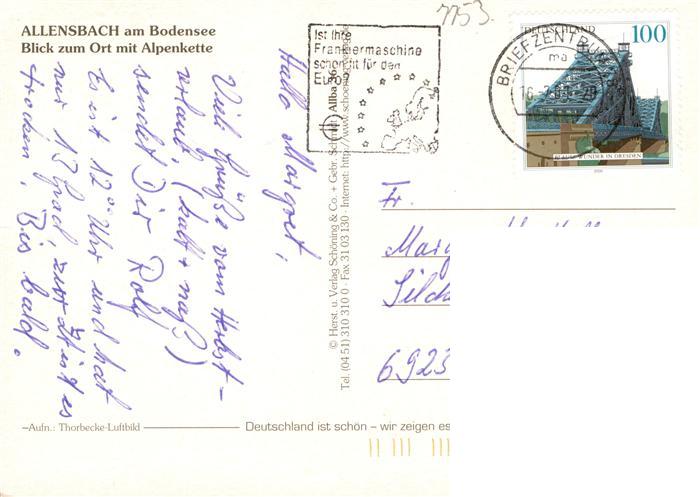 ALLENSBACH am Bodensee
Blick zum Ort mit Alpenkette
7753
Ist Ihre
Frankiermaschine
schon fit für den
Euro?
BRIEFZENTRUM
ma
DEUTSCHLAND
100
BLAUES WUNDER IN DRESDEN
2000
Hallo Margret,
Viele Grüße vom Herbst-
urlaub, (kalt + naß?)
sendet Dir Rolf
Es ist 12⁰⁰ Uhr und hat
nur 13 Grad, zur Zeit ist es
trocken. Bis bald.
© Herst. u. Verlag Schöning & Co. + Gebr. Schmidt
Tel. (04 51) 310 310 0 · Fax 31 03 130 · Internet: http://www.schoening
Fr.
Marg
Silch
6923
Aufn.: Thorbecke-Luftbild
Deutschland ist schön – wir zeigen es